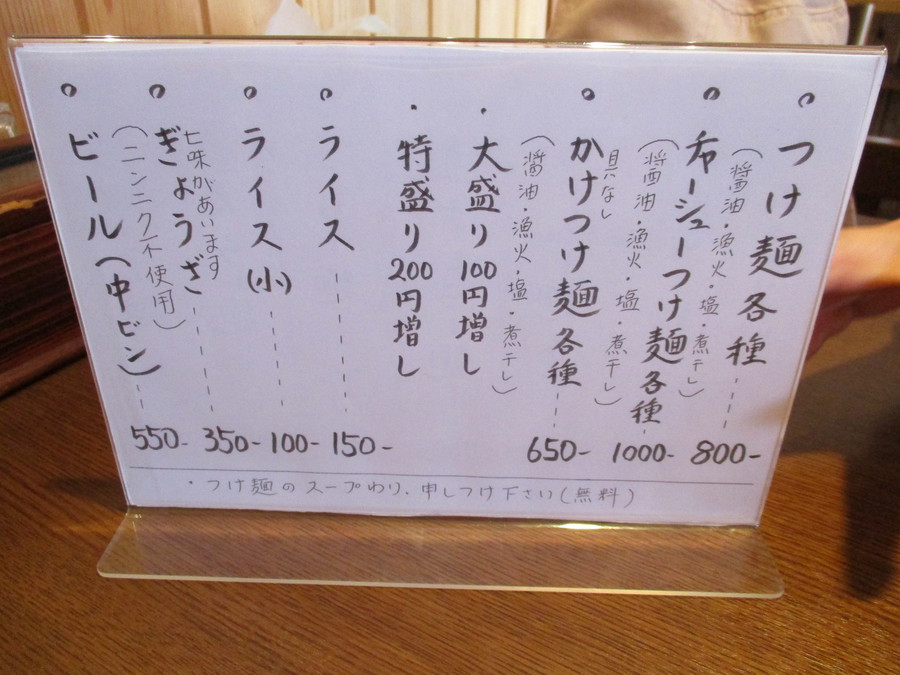 つけ麺各種----800-
(醤油・漁火・塩・煮干し)
チャーシューつけ麺各種-1000-
(醤油・漁火・塩・煮干し)
具なし
かけつけ麺各種---650-
(醤油・漁火・塩・煮干し)
・大盛り100円増し
・特盛り200円増し
ライス------150-
ライス(小)-----100-
七味があいます
ぎょうざ-----350-
(ニンニク不使用)
ビール(中ビン)--550-
・つけ麺のスープわり、申しつけ下さい(無料)